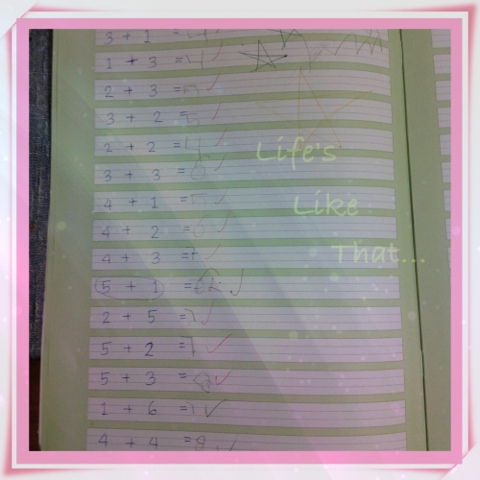 3 + 1 = 4
1 + 3 = 4
2 + 3 =
3 + 2 =
2 + 2 = 4
3 + 3 = 6
4 + 1 =
4 + 2 = 6
4 + 3 = 7
5 + 1 =
2 + 5 = 7
5 + 2 = 7
5 + 3 = 8
1 + 6 = 7
4 + 4 = 8
Life's
Like
That...